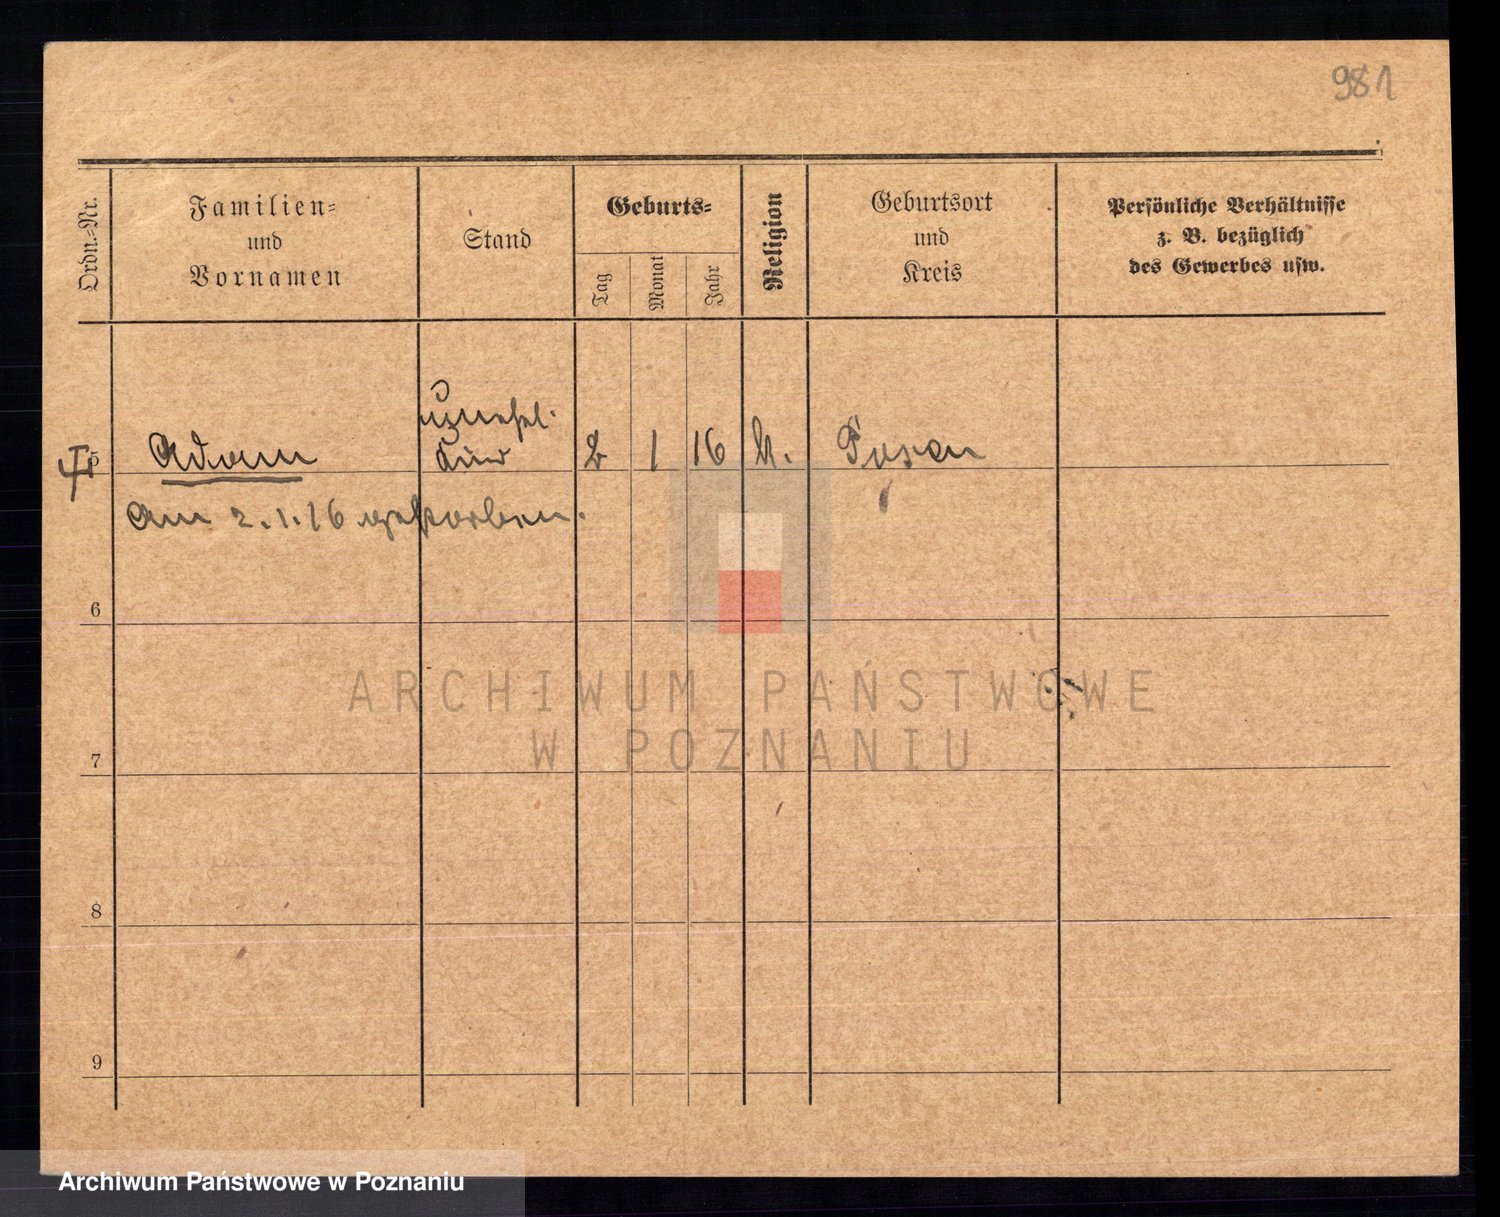 981
Ordn.-Nr.
Familien-
und
Vornamen
Stand
Geburts-
Tag
Monat
Jahr
Religion
Geburtsort
und
Kreis
Persönliche Verhältnisse
z. B. bezüglich
des Gewerbes usw.
5 Adam unehel. Kind 2 1 16 k. Posen
am 2.1.16 gestorben.
6
7
8
9
ARCHIWUM PAŃSTWOWE
W POZNANIU
Archiwum Państwowe w Poznaniu